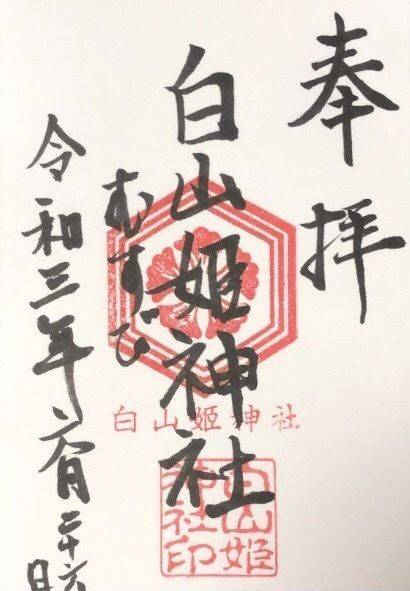 奉拝
白山姫神社
むすび
令和三年六月二十六日
白山姫神社
白山姫神社印